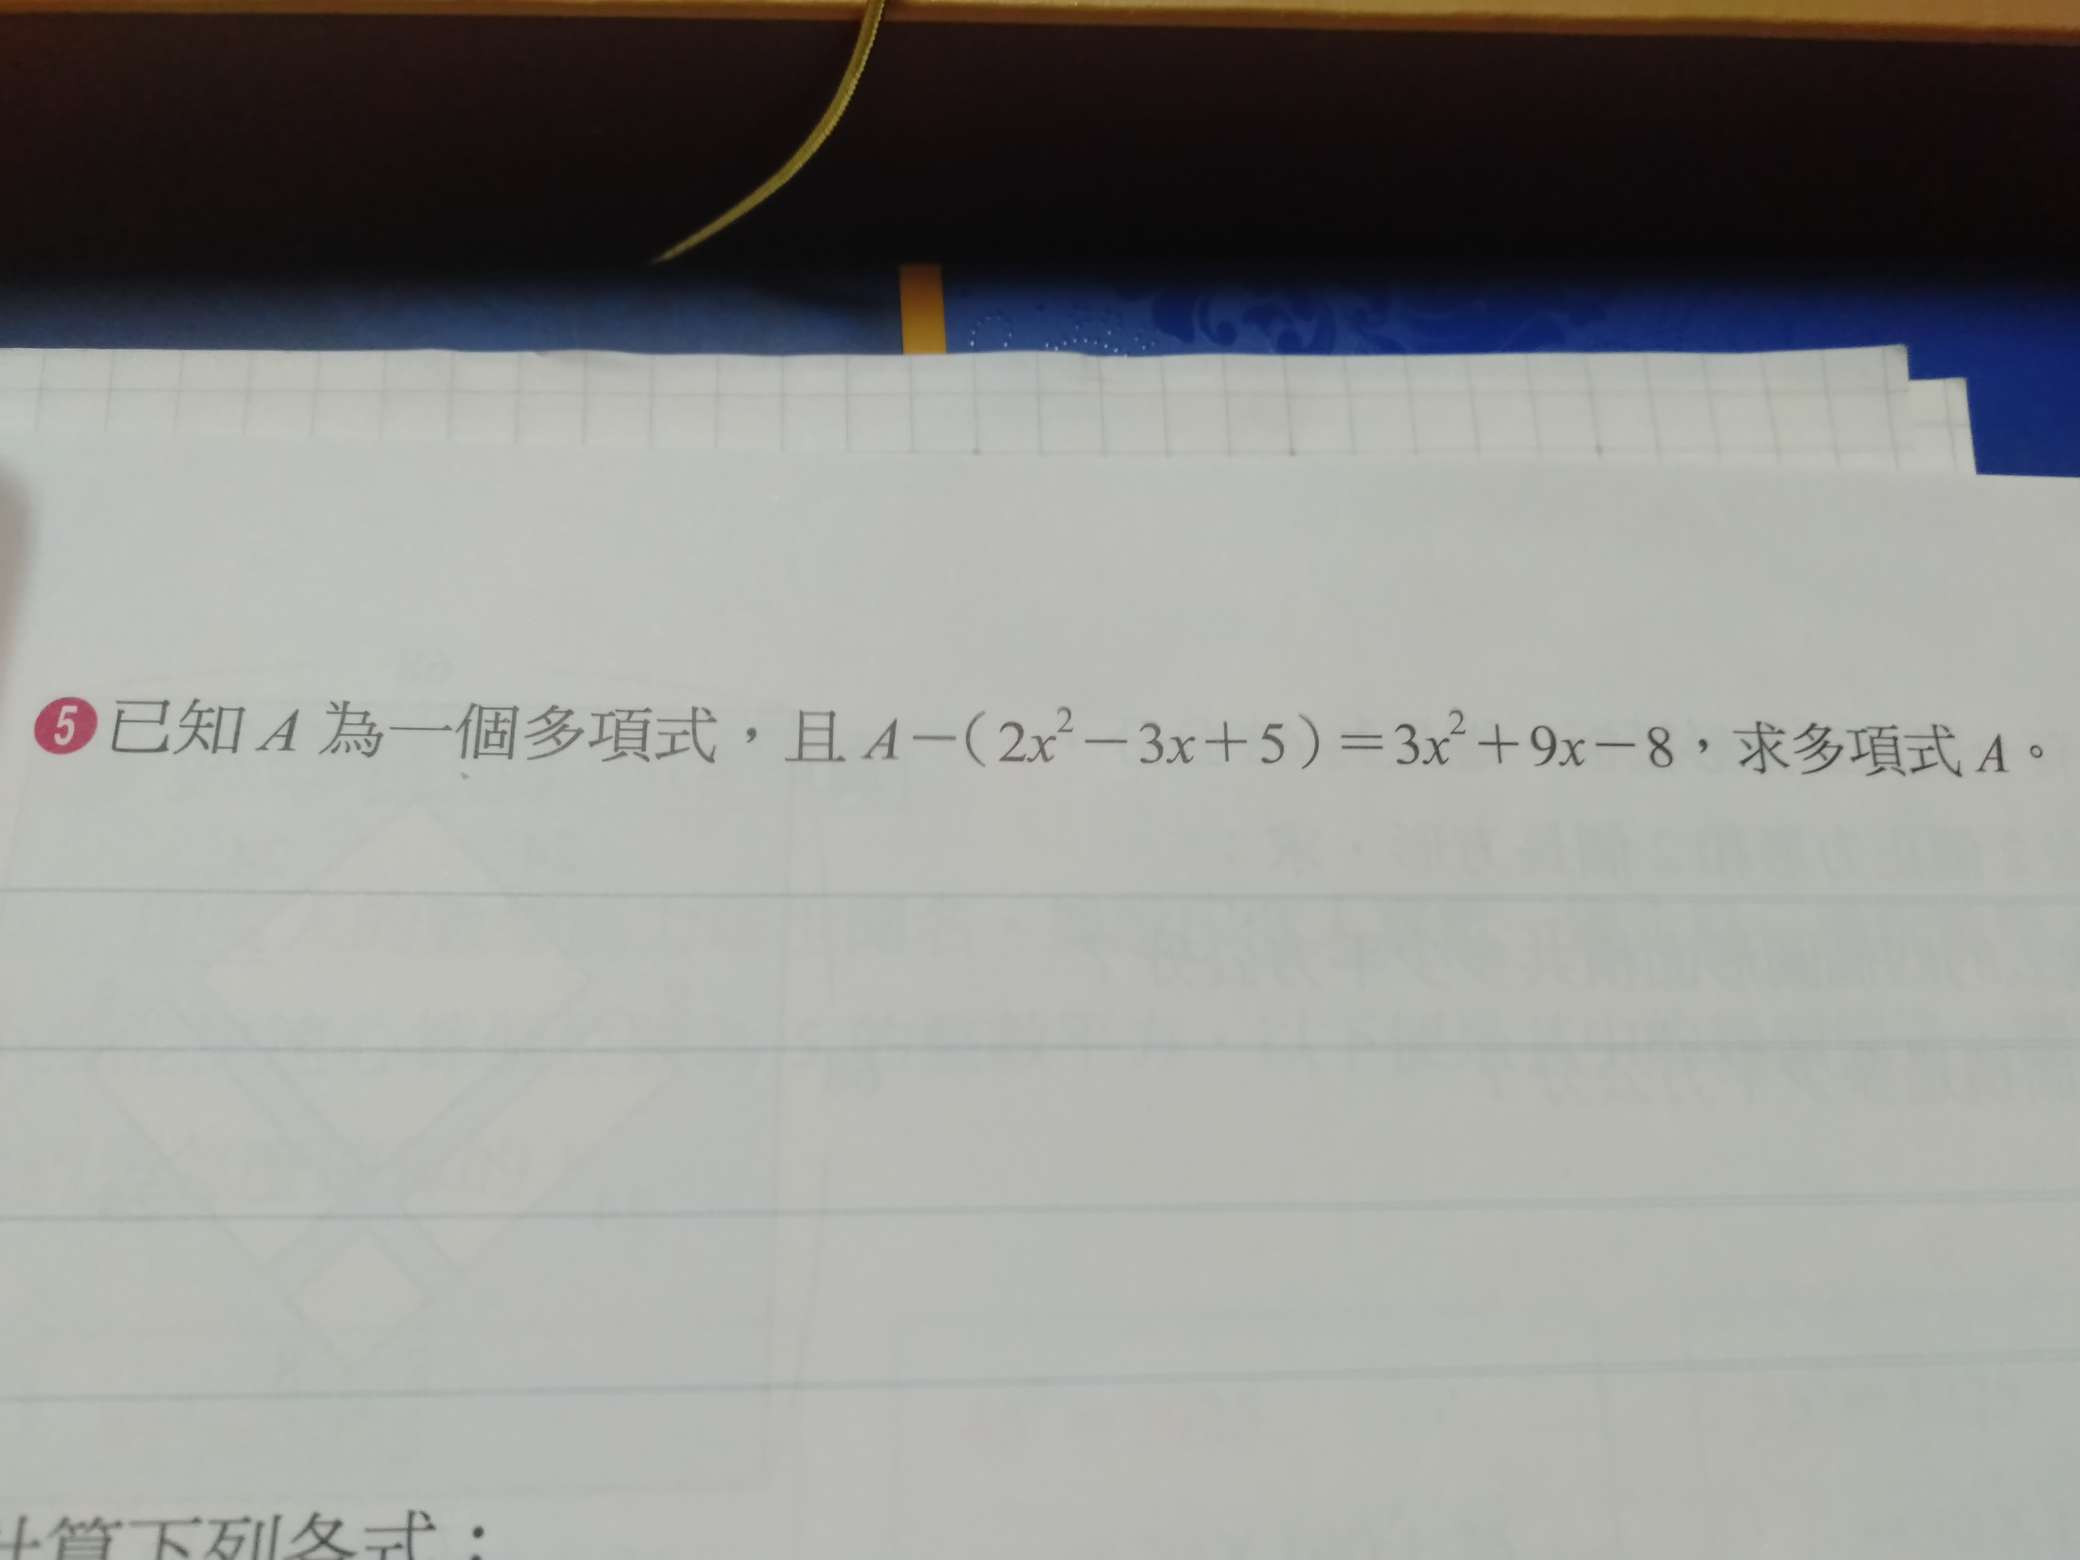 5 已知 A 為一個多項式，且 A－( 2x²－3x＋5 )＝3x²＋9x－8，求多項式 A。
計算下列各式：